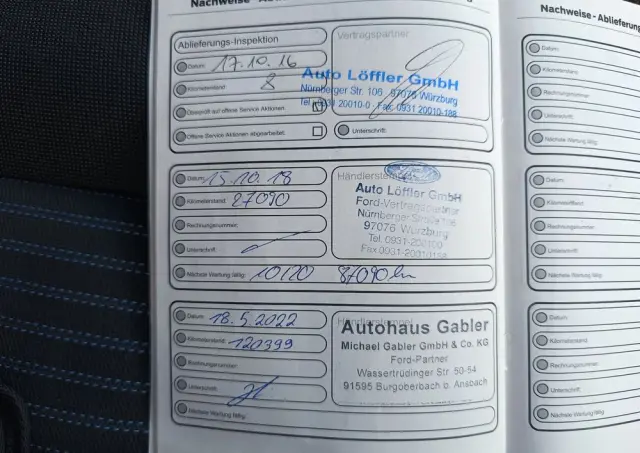 Nachweise - 
Nachweise - Ablieferung
Ablieferungs-Inspektion
Datum: 17.10.16
Kilometerstand: 8
Überprüft auf offene Service Aktionen:
Offene Service Aktionen abgearbeitet:
Vertragspartner
Auto Löffler GmbH
Nürnberger Str. 106 97076 Würzburg
Tel. 0931 20010-0 Fax 0931 20010-188
Unterschrift:
Datum: 15.10.18
Kilometerstand: 27090
Rechnungsnummer:
Unterschrift:
Nächste Wartung fällig: 10/20 87090 km
Händlerstempel
Ford
Auto Löffler GmbH
Ford-Vertragspartner
Nürnberger Straße 106
97076 Würzburg
Tel. 0931-200100
Fax 0931-20010188
Datum: 18.5.2022
Kilometerstand: 120399
Rechnungsnummer:
Unterschrift:
Nächste Wartung fällig:
Händlerstempel
Autohaus Gabler
Michael Gabler GmbH & Co. KG
Ford-Partner
Wassertrüdinger Str. 50-54
91595 Burgoberbach b. Ansbach
Datum:
Kilometerstand:
Rechnungsnummer:
Unterschrift:
Nächste Wartung fällig:
Datum:
Kilometerstand:
Rechnungsnummer:
Unterschrift:
Nächste Wartung fällig:
Datum:
Kilometerstand:
Rechnungsnummer:
Unterschrift:
Nächste Wartung fällig: